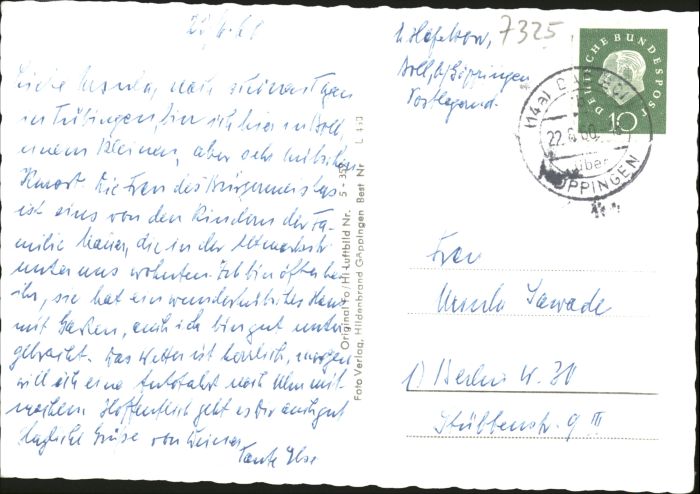 Liebe Ursula, nach
in Tübingen, bin ich hier in Boll,
einem kleinen, aber sehr hübschen
Kurort. Die Frau des Bürgermeisters
ist eines von den Kindern der Fa-
milie Maier, die in der
unter uns wohnten. Ich bin öfter bei
ihr, sie hat ein wunderhübsches Haus
mit Garten, auch ich bin gut unter
gebracht. Das Wetter ist herrlich, morgen
will ich eine Autofahrt nach Ulm mit-
machen. Hoffentlich geht es Dir auch gut
Herzliche Grüsse von Deiner
Tante Ilse
Original Yo/Hi-Luftbild Nr. 5 - 352
Foto Verlag, Hildenbrand Göppingen Best Nr L 440
7325
Boll, b/Göppingen
Postlagernd.
DEUTSCHE BUNDESPOST
10
(14a) BAD BOLL
22.6.60
über
GÖPPINGEN
Frau
Ursula Sawade
1) Berlin W. 30
Stübbenstr. 9 III